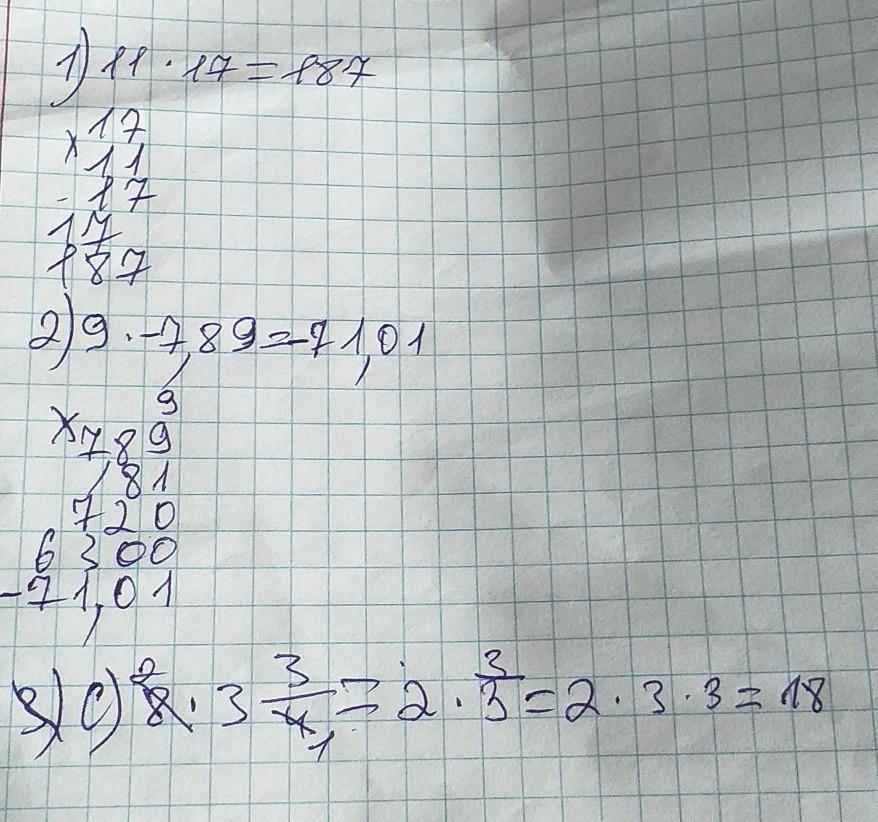 1) 11 · 17 = 187
17
× 11
17
17
187
2) 9 · -7,89 = -71,01
9
× 7,89
81
720
6300
-71,01
3) c) 8 2 · 3 3/4 1 = 2 · 3 3 = 2 · 3 · 3 = 18